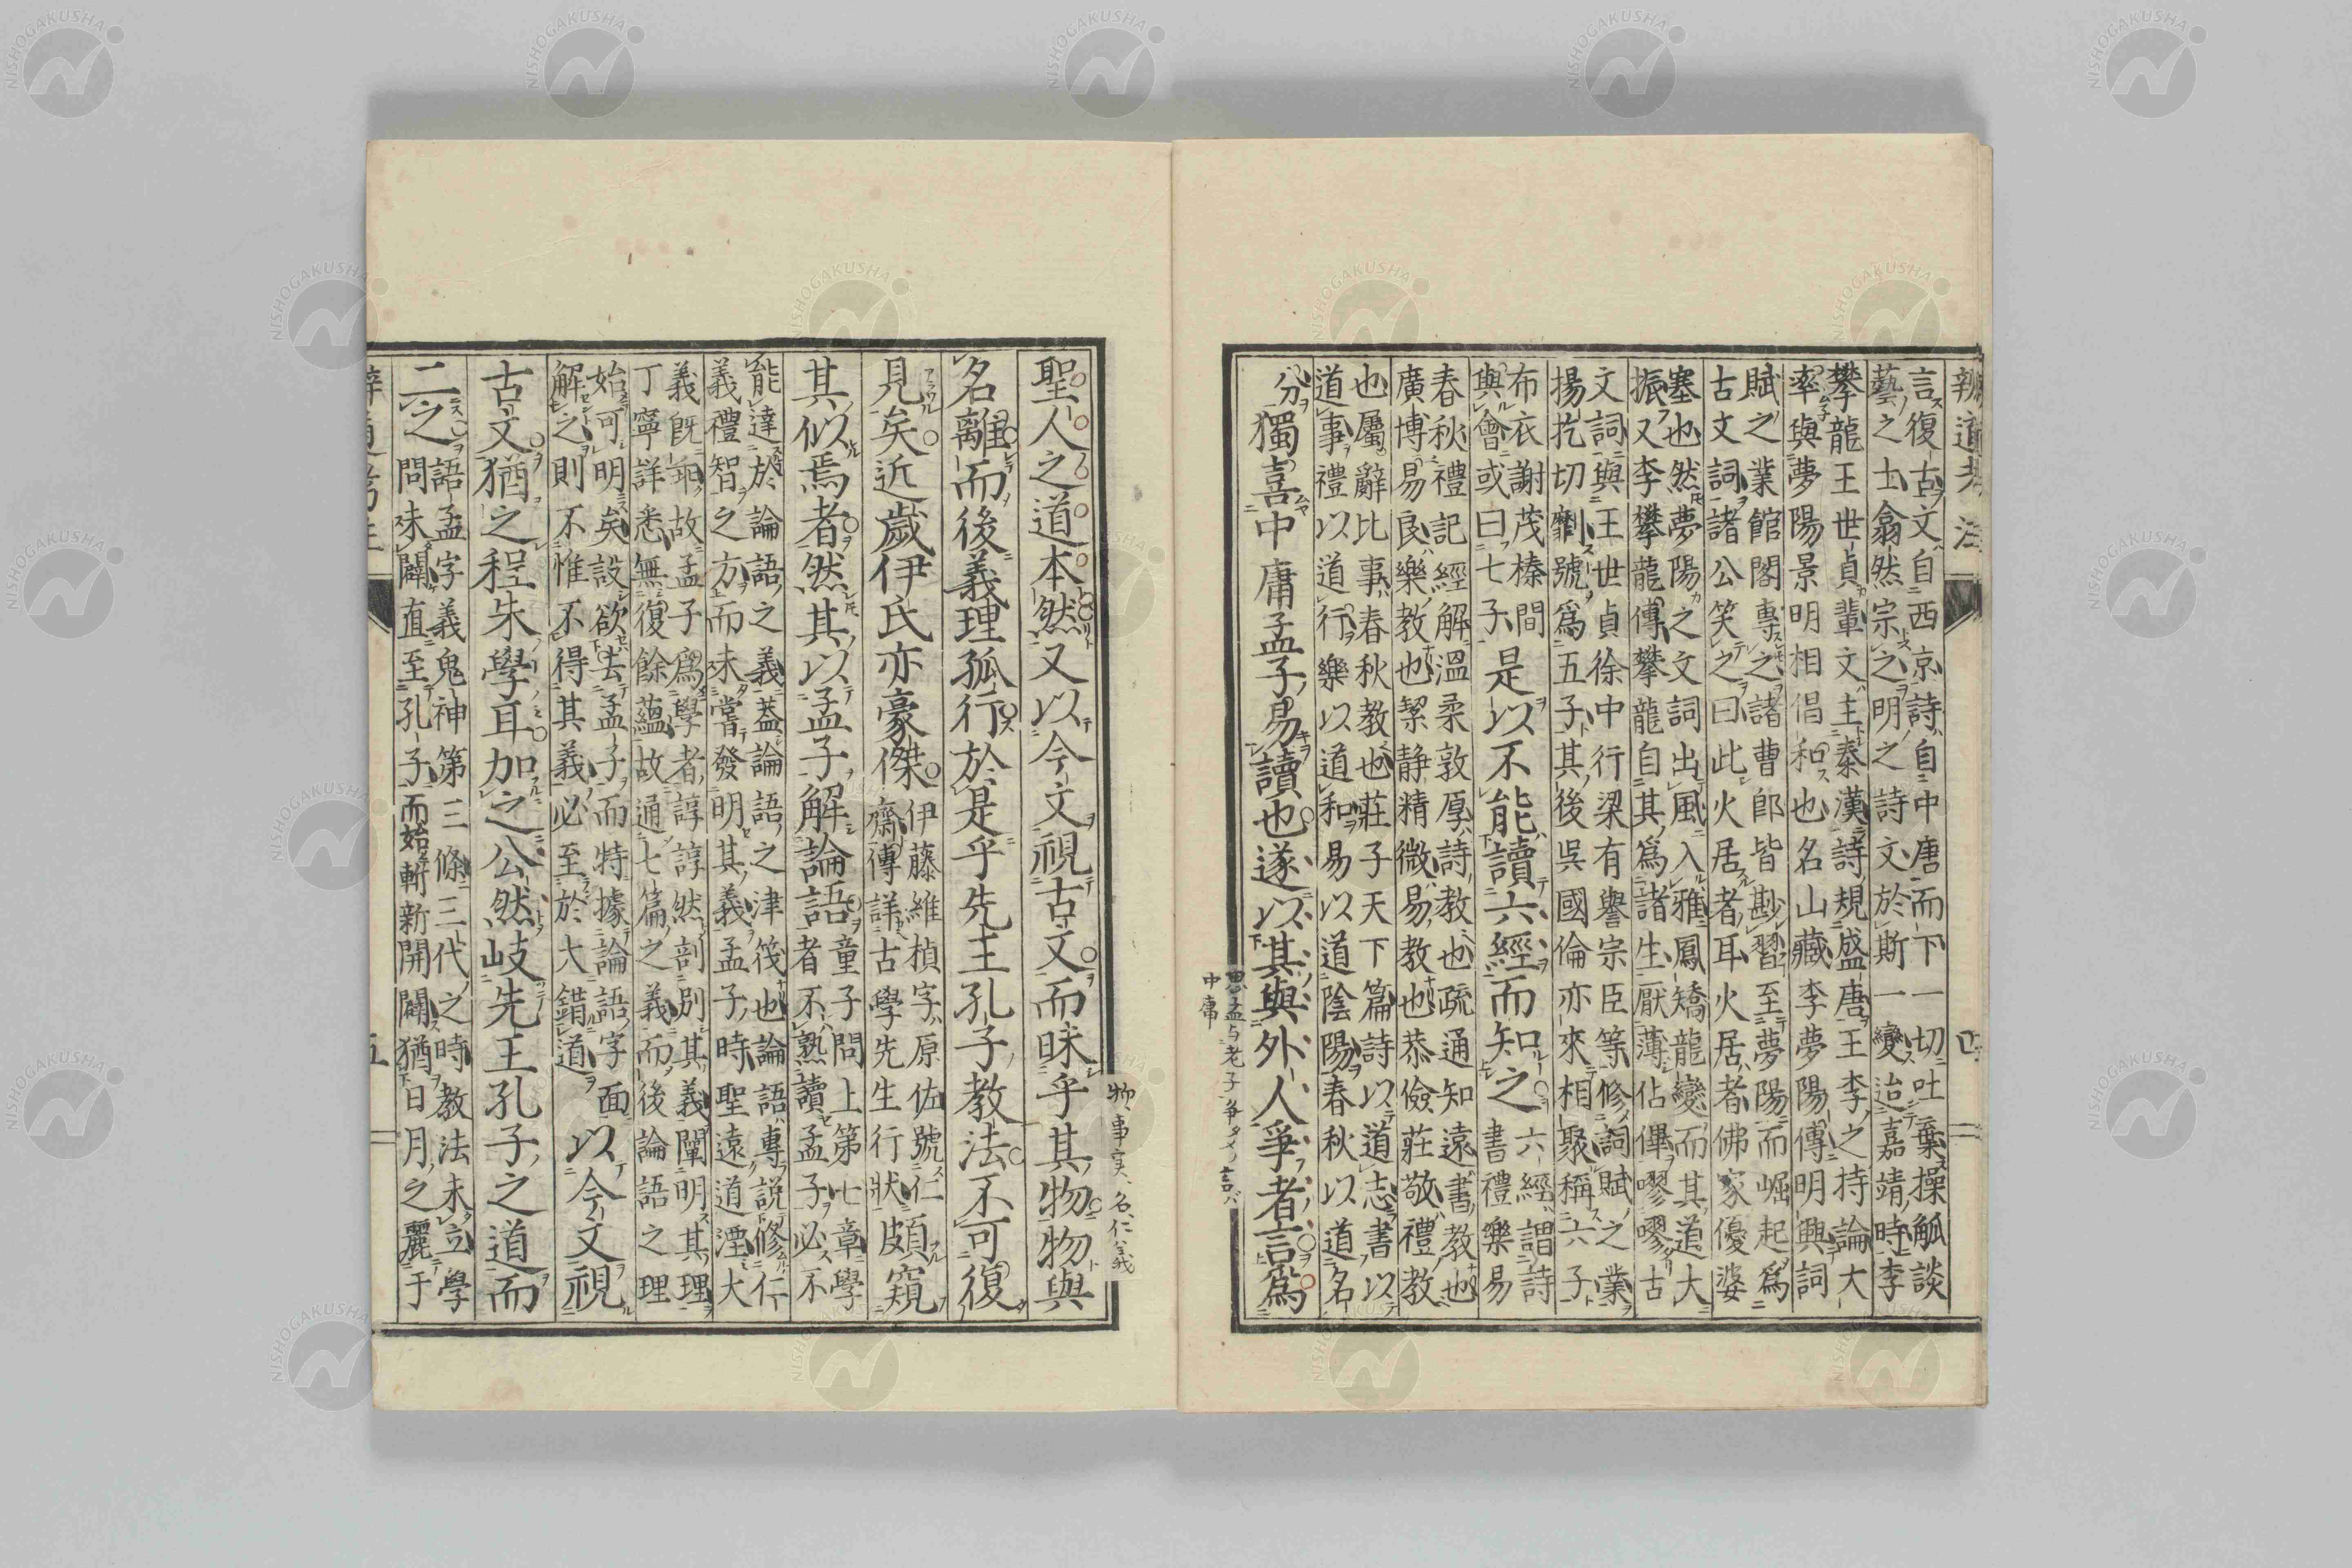 辨道考注
言復古文自西京詩自中唐而下一切吐棄操觚談
藝之士翕然宗之明之詩文於斯一變迨嘉靖時李
攀龍王世貞輩文主秦漢詩規盛唐王李之持論大
率與夢陽景明相倡和也名山藏李夢陽傳明興詞
賦之業館閣專之諸曹郎皆尠習至夢陽而崛起爲
古文詞諸公笑之曰此火居者耳火居者佛家優婆
塞也然夢陽之文詞出風入雅鳳矯龍變而其道大
振又李攀龍傳攀龍自其爲諸生厭薄佔僤嘐嘐古
文詞與王世貞徐中行梁有譽宗臣等修詞賦之業
揚扢切劘號爲五子其後吳國倫亦來相聚稱六子
布衣謝茂榛間
與會或曰七子
是以不能讀六經而知之
六經謂詩
書禮樂易
春秋禮記經解溫柔敦厚詩教也疏通知遠書教也
廣博易良樂教也絜静精微易教也恭儉莊敬禮教
也屬辭比事春秋教也莊子天下篇詩以道志書以
道事禮以道行樂以道和易以道陰陽春秋以道名
分獨喜中庸孟子易讀也遂以其與外人爭者言爲
思孟与老子争タメノ言バ
中庸
物、事実、名、仁義
聖人之道本然又以今文視古文而昧乎其物物與
名離而後義理孤行於是乎先王孔子教法不可復
見矣近歲伊氏亦豪傑
伊藤維楨字原佐號仁
齋傳詳古學先生行狀
頗窺
其似焉者然其以孟子解論語
童子問上第七章學
者不熟讀孟子必不
能達於論語之義蓋論語之津筏也論語專說修仁
義禮智之方而未嘗發明其義孟子時聖遠道湮大
義既乖故孟子爲學者諄諄然剖別其義闡明其理
丁寧詳悉無復餘蘊故通七篇之義而後論語之理
始可明矣設欲去孟子而特據論語字面
解之則不惟不得其義必至於大錯道
以今文視
古文猶之程朱學耳加之公然岐先王孔子之道而
二之
語孟字義鬼神第三條三代之時教法未立學
問未闢直至孔子而始斬新開闢猶日月之麗于
五